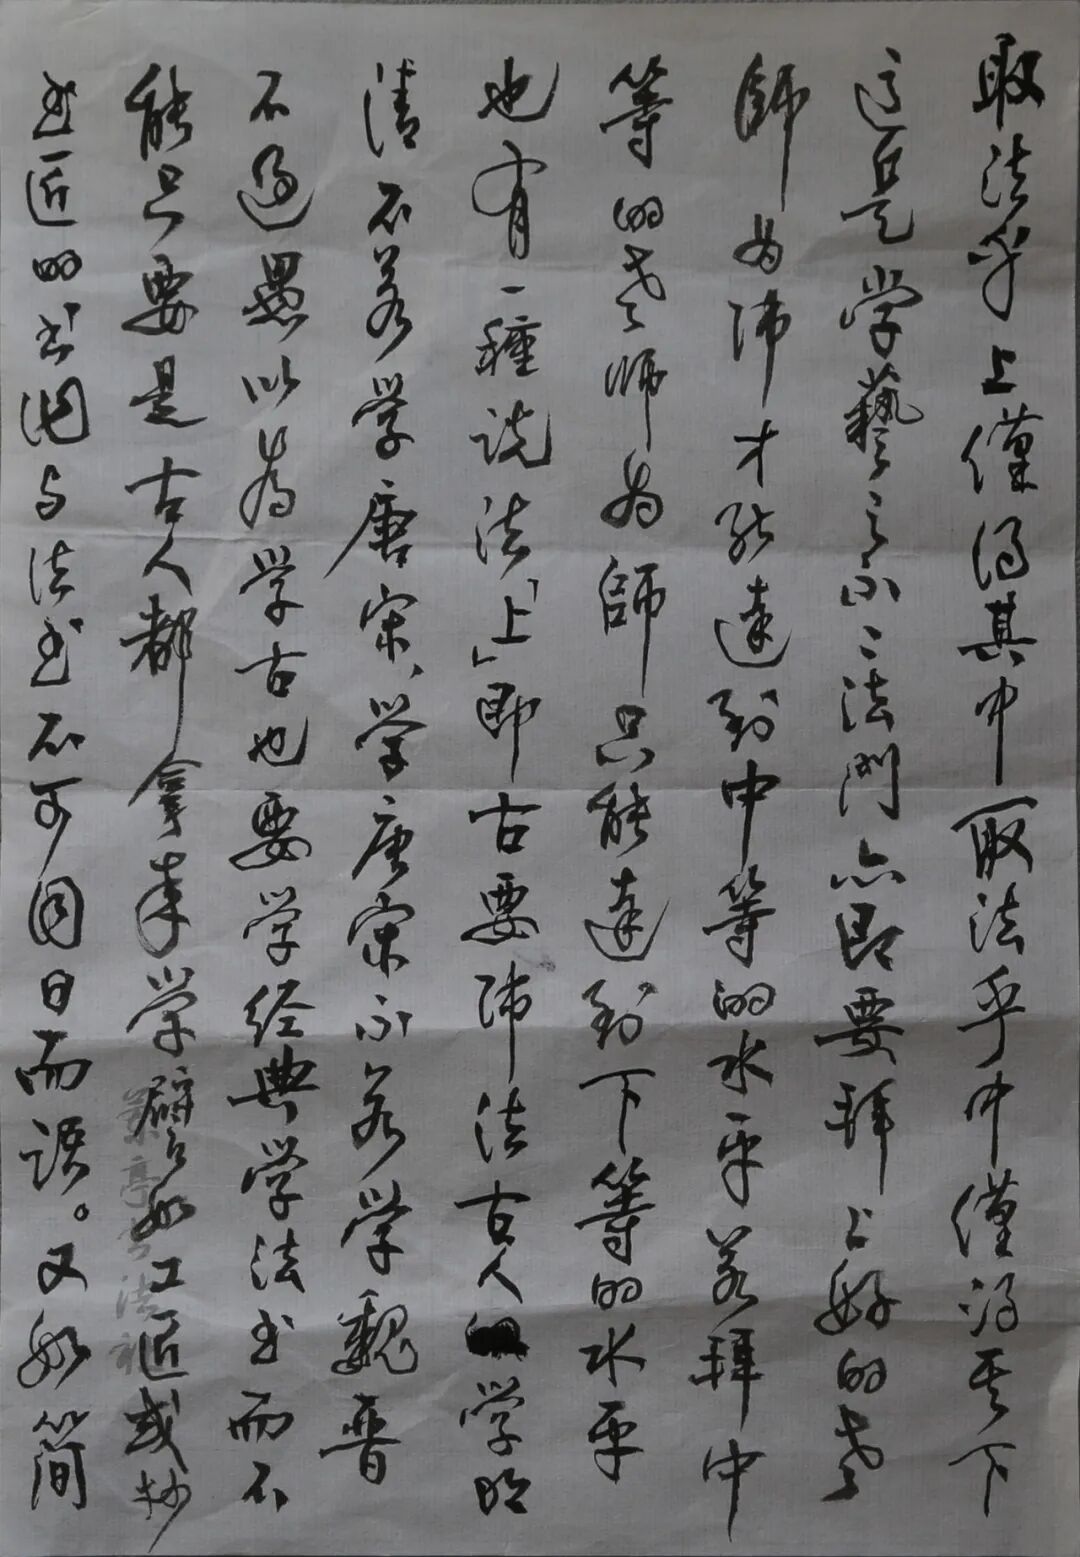 取法乎上僅得其中取法乎中僅得其下
这是学藝之不二法門亦即要拜上好的老
師为师才能達到中等的水平若拜中
等的老师为師只能達到下等的水平
也有一種说法「上」即古要师法古人学明
清不若学唐宋、学唐宋不若学魏晉
不過愚以為学古也要学经典学法书而不
能只要是古人都拿来学譬如工匠或抄
书匠的书闲与法书不可同日而语。又如简